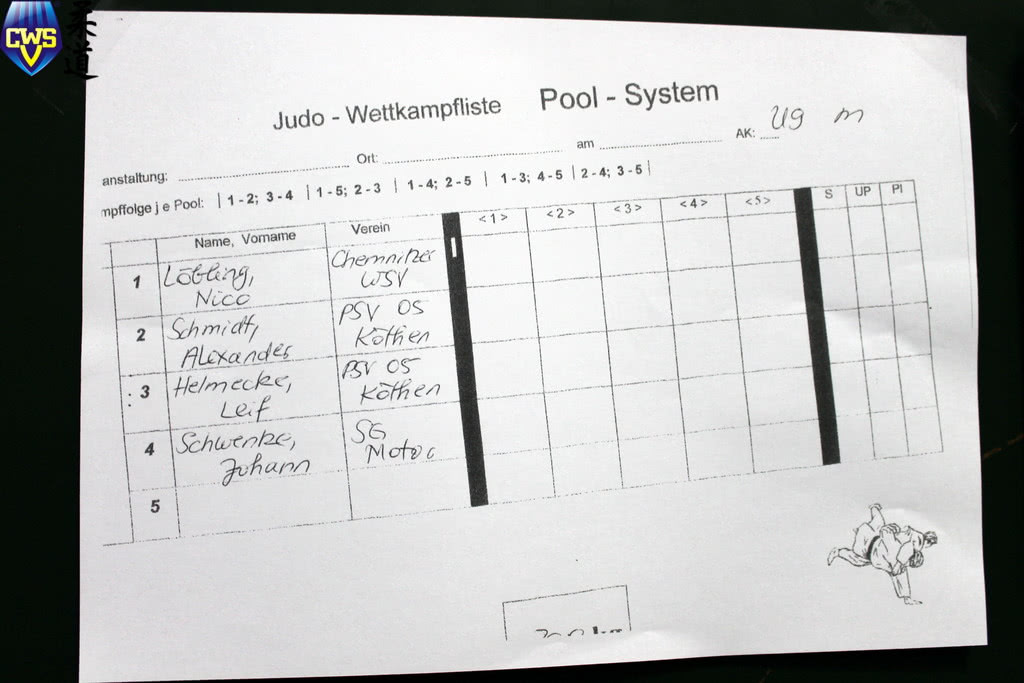 CWSV
柔道
Judo - Wettkampfliste Pool - System
anstaltung: Ort: am AK: U9 m
mpffolge j e Pool: | 1 - 2; 3 - 4 | 1 - 5; 2 - 3 | 1 - 4; 2 - 5 | 1 - 3; 4 - 5 | 2 - 4; 3 - 5 |
Name, Vorname Verein <1> <2> <3> <4> <5> S UP Pl
1 Löbling, Chemnitzer
Nico WSV
2 Schmidt, PSV 05
Alexander Köthen
3 Helmecke, PSV 05
Leif Köthen
4 Schwenke, SG
Johann Motor
5